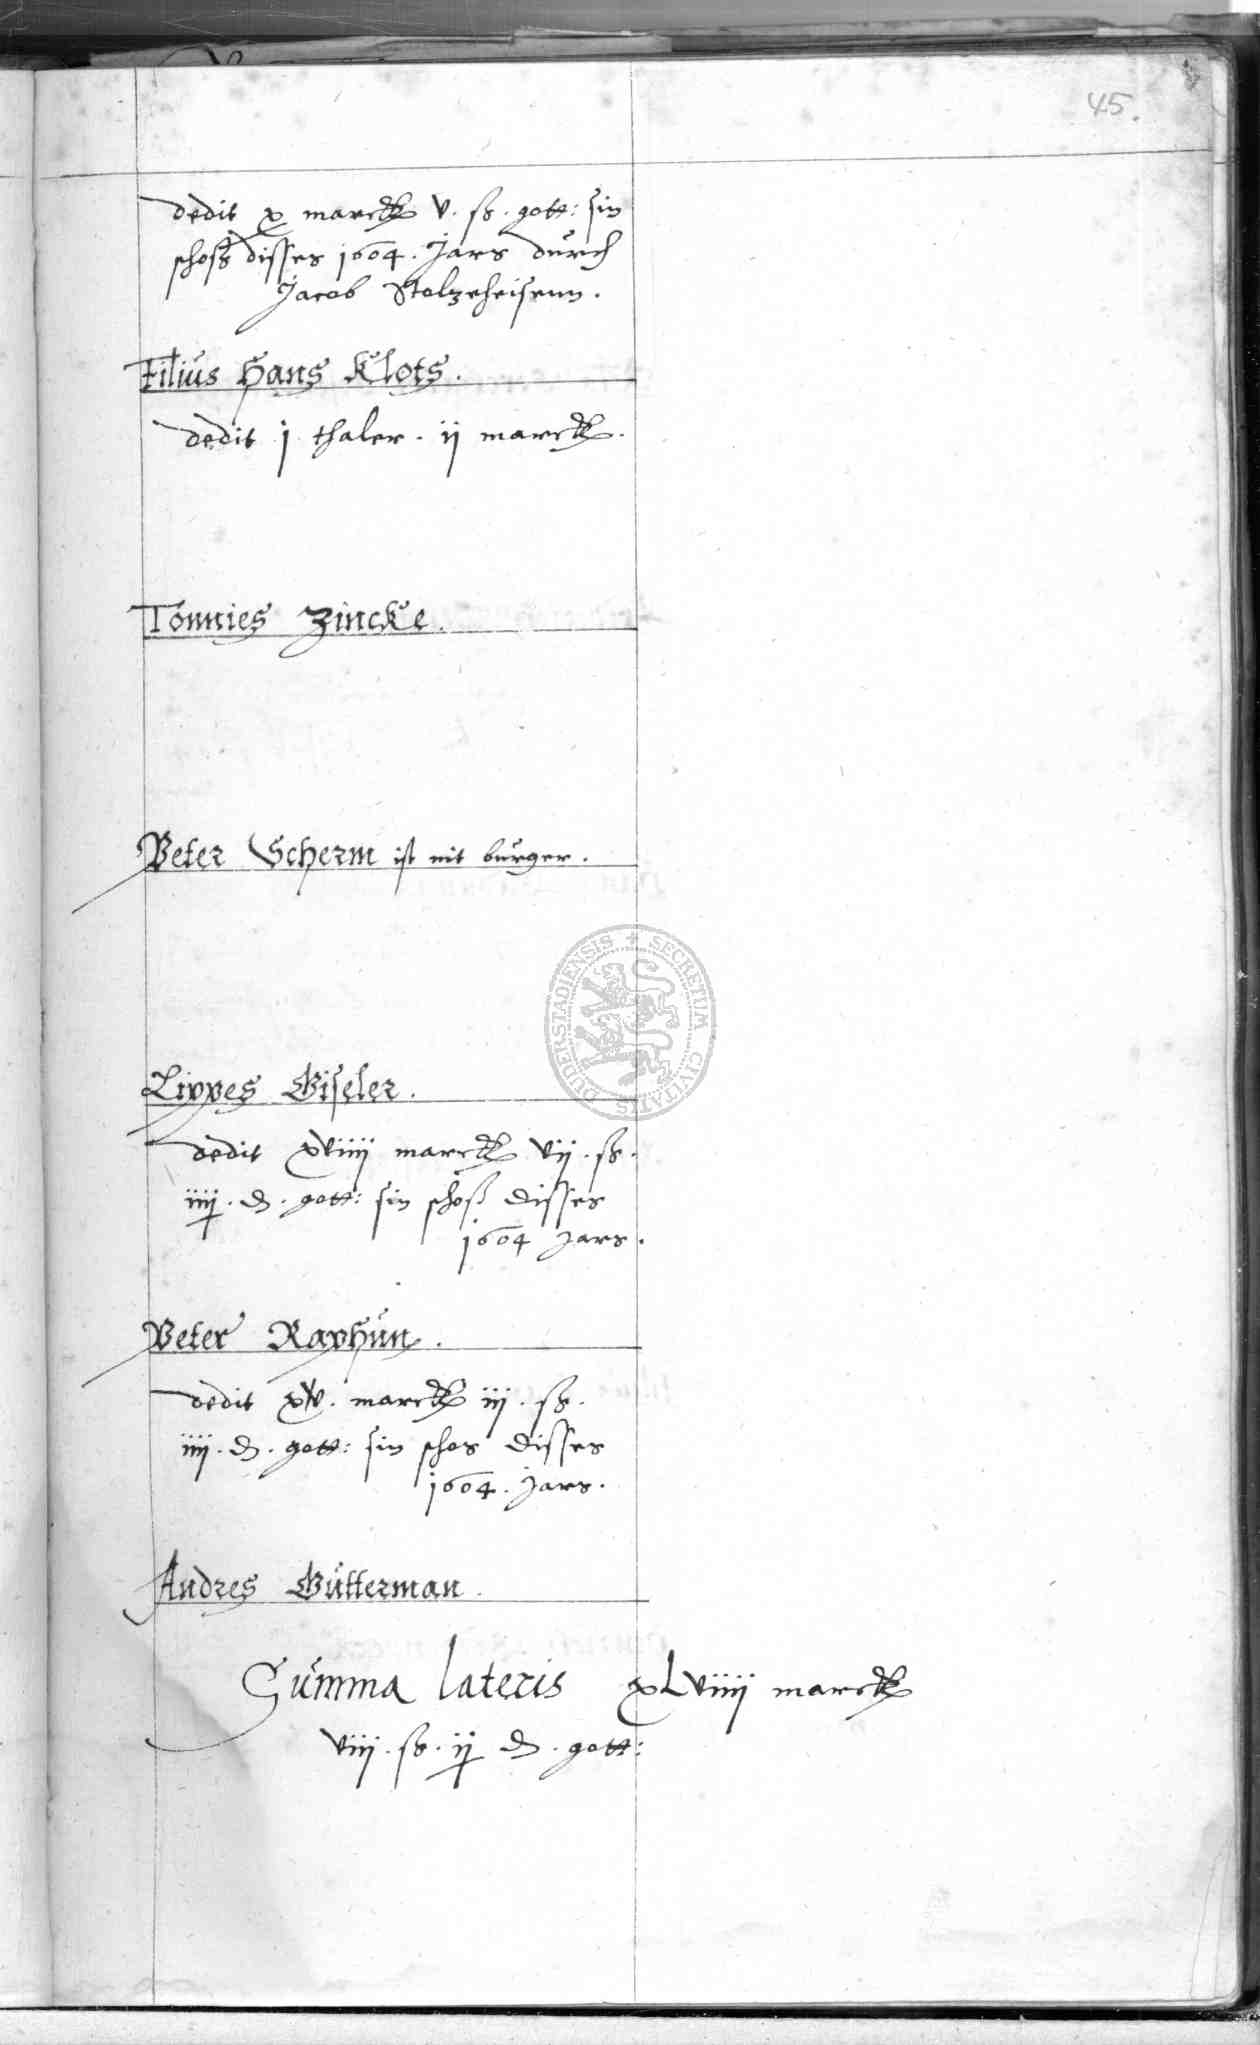 45.
dedit x marck v. ß. gott: sin
schoß disses 1604. Jars durch
Jacob Stolzeheisenn.
Filius Hans Klots.
dedit j thaler. ij marck.
Tönnies Zincke.
Peter Scherm ist nit burger.
Lippes Giseler.
dedit xviiij marck vij. ß.
iiij. d. gott: sin schoß disses
1604 Jars.
Peter Raphun.
dedit xv. marck iij. ß.
iiij. d. gott: sin schos disses
1604. Jars.
Andres Gutterman.
Summa lateris xLviiij marck
viij. ß. ij d. gott:
SECRETUM CIVITATIS DUDERSTADIENSIS